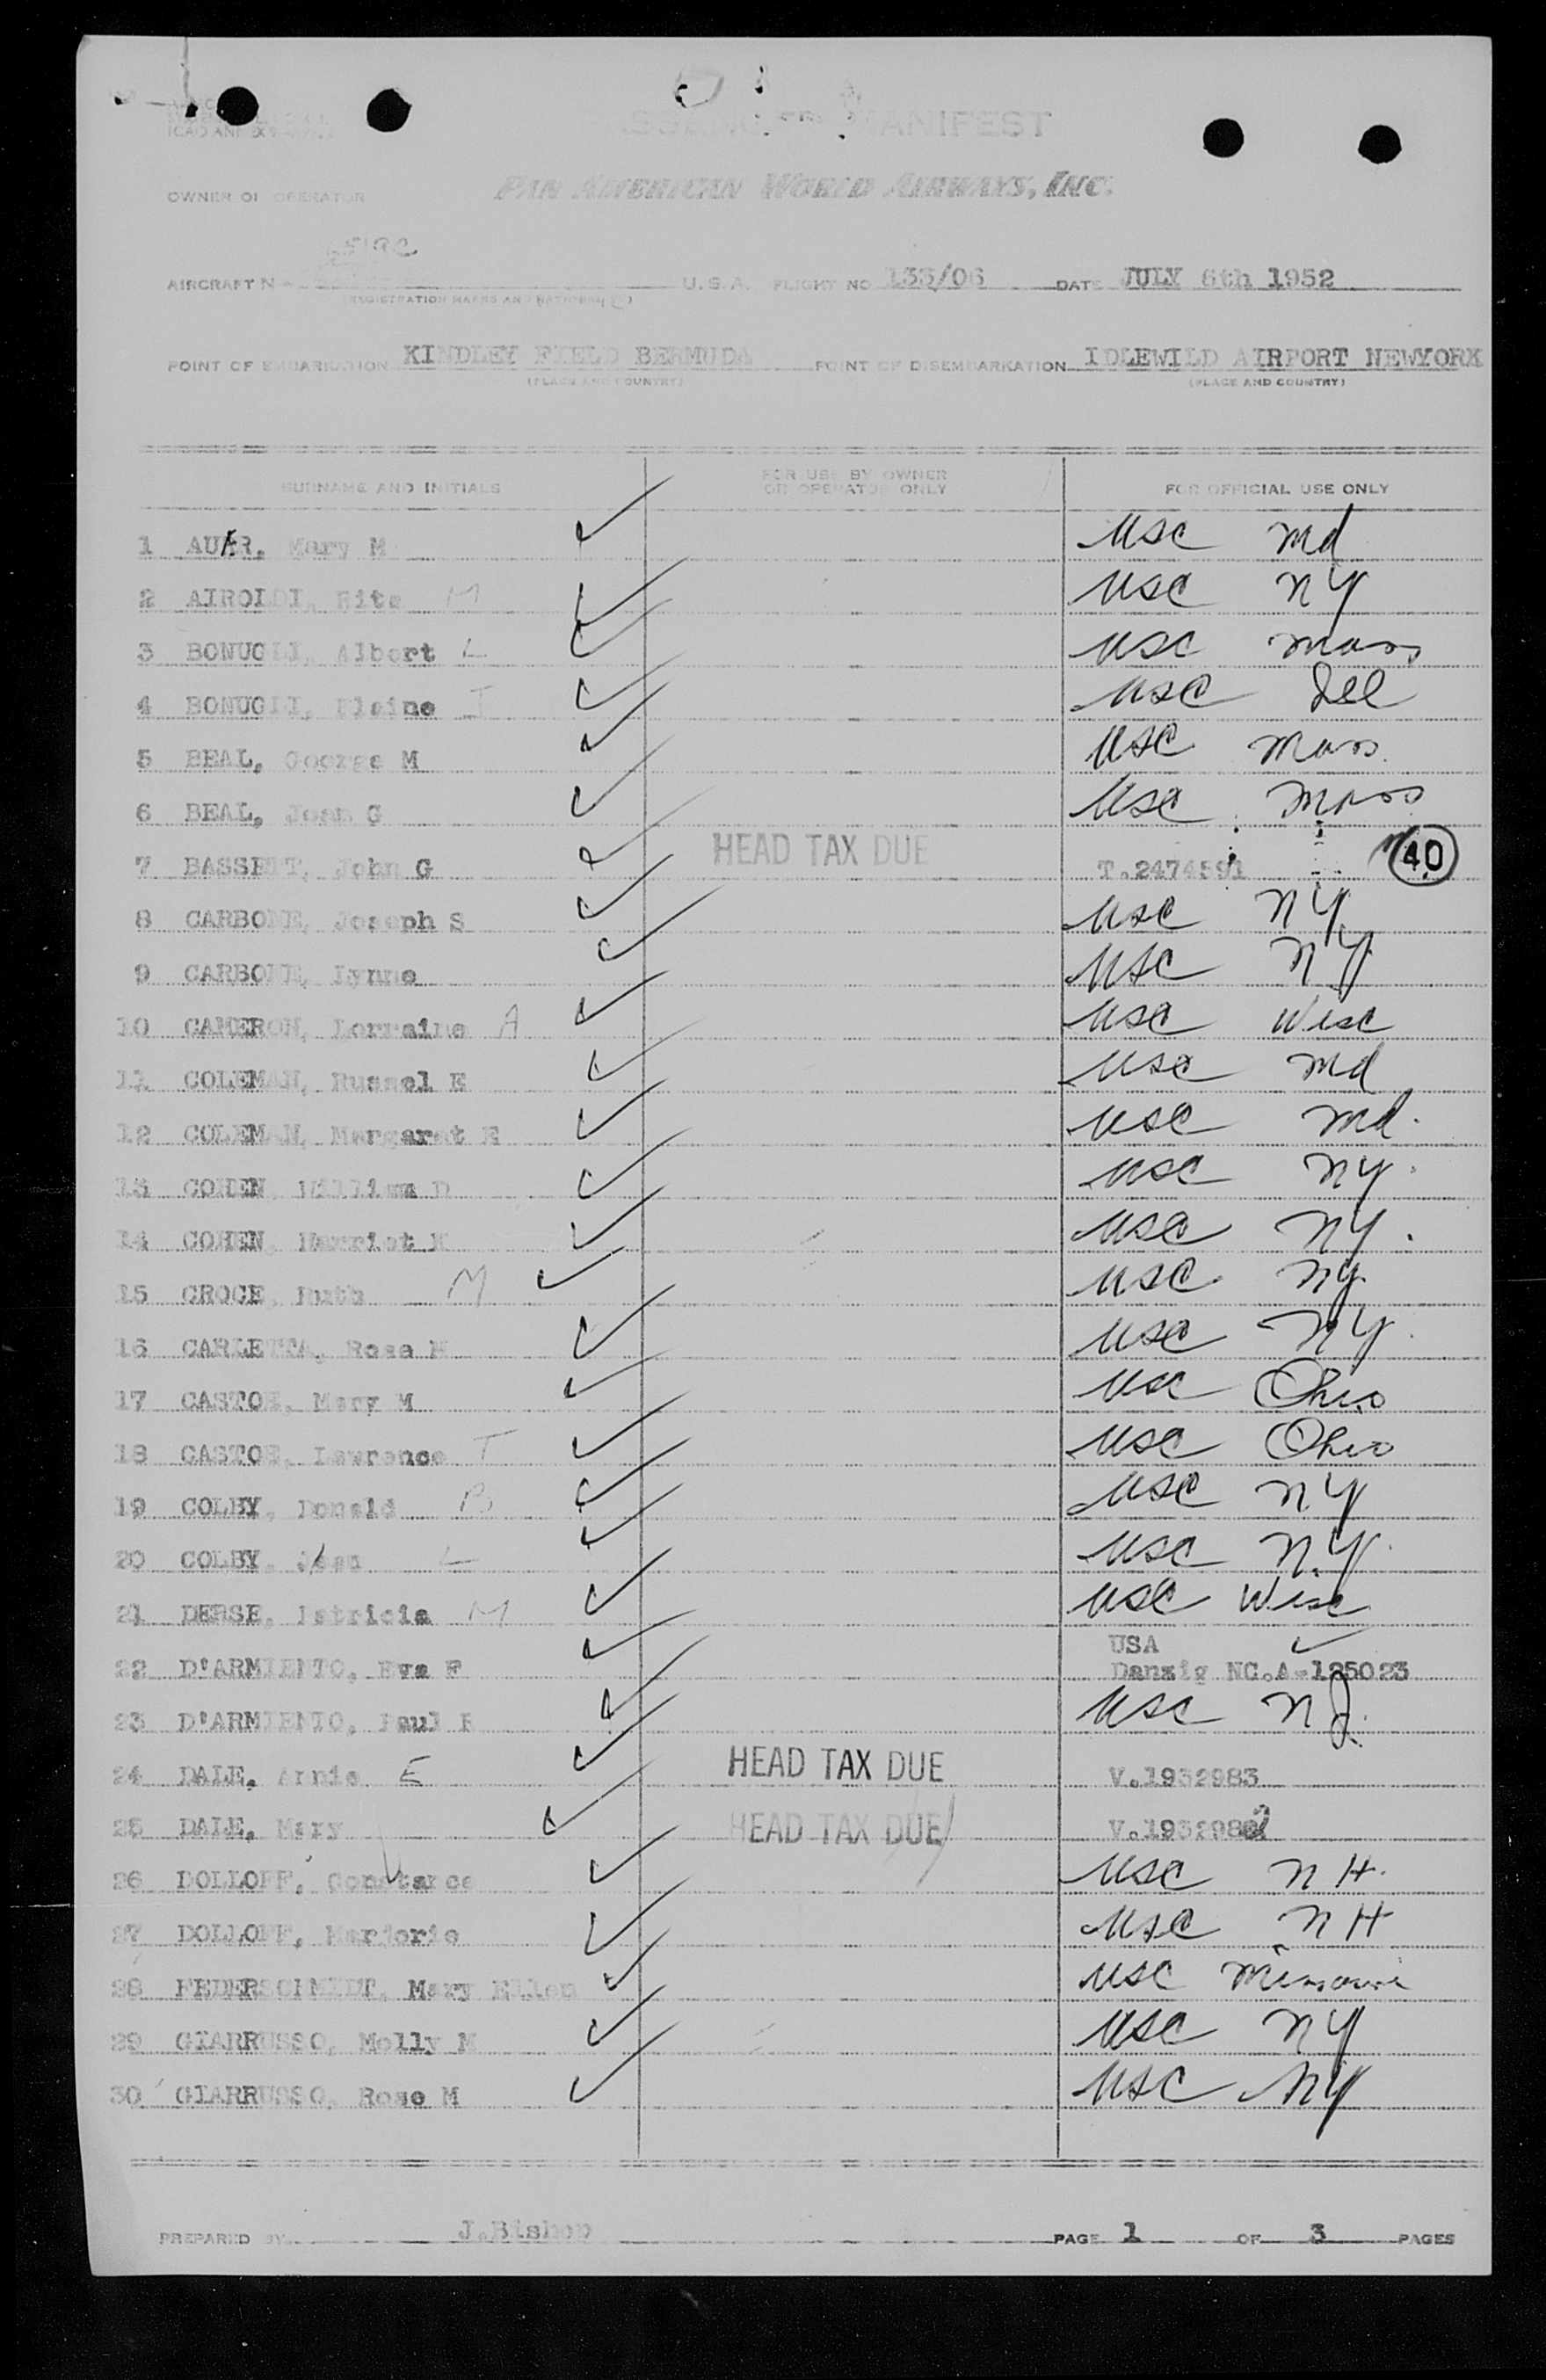 PASSENGER MANIFEST
OWNER OR OPERATOR PAN AMERICAN WORLD AIRWAYS, INC.
AIRCRAFT N U.S.A. FLIGHT NO 133/06 DATE JULY 6th 1952
(REGISTRATION MARKS AND NATIONALITY)
POINT OF EMBARKATION KINDLEY FIELD BERMUDA POINT OF DISEMBARKATION IDLEWILD AIRPORT NEWYORK
(PLACE AND COUNTRY) (PLACE AND COUNTRY)
SURNAME AND INITIALS FOR USE BY OWNER OR OPERATOR ONLY FOR OFFICIAL USE ONLY
1 AUER, Mary M USC Md
2 AIROLDI, Rita M USC NY
3 BONUGLI, Albert L USC Mass
4 BONUGLI, Elaine I USC Del
5 BEAL, George M USC Mass.
6 BEAL, Joan G USC Mass
7 BASSETT, John G HEAD TAX DUE T.2474591 40
8 CARBONE, Joseph S USC NY
9 CARBONE, Lynne USC NY
10 CAMERON, Lorraine A USC Wisc
11 COLEMAN, Russel E USC Md
12 COLEMAN, Margaret E USC Md.
13 COHEN, William D USC NY.
14 COHEN, Harriet USC NY.
15 CROCE, Ruth M USC NY
16 CARLETTA, Rosa USC NY.
17 CASTOR, Mary M USC Ohio
18 CASTOR, Lawrence T USC Ohio
19 COLBY, Donald B USC NY
20 COLBY, L USC N.Y.
21 DERSE, Patricia M USC Wisc
USA
22 D'ARMIENTO, Eva F Danzig NC.A-125023
23 D'ARMIENTO, Paul USC NJ.
24 DALE, Arnie E HEAD TAX DUE V.1932983
25 DALE, Mary HEAD TAX DUE V.1932982
26 DOLLOFF, Constance USC NH.
27 DOLLOFF, Marjorie USC NH
28 FEDERSCHMIDT, Mary Ellen USC Missouri
29 GIARRUSSO, Molly M USC NY
30 GIARRUSSO, Rose M USC NY
PREPARED BY J.Bishop PAGE 1 OF 3 PAGES